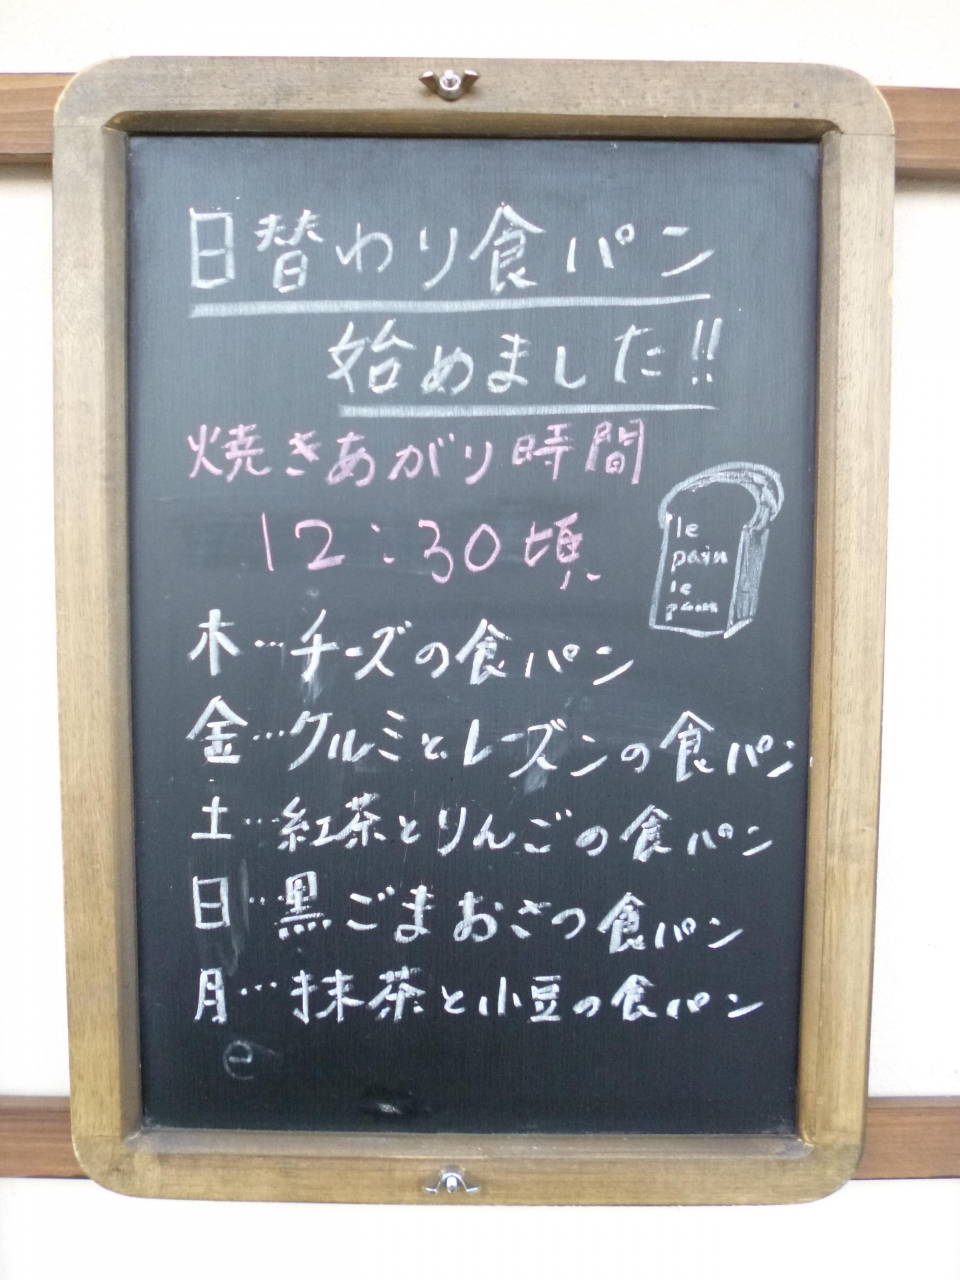 日替わり食パン
始めました!!
焼きあがり時間
12:30頃
le
pain
le
pain
木…チーズの食パン
金…クルミとレーズンの食パン
土…紅茶とりんごの食パン
日…黒ごまおさつ食パン
月…抹茶と小豆の食パン
e